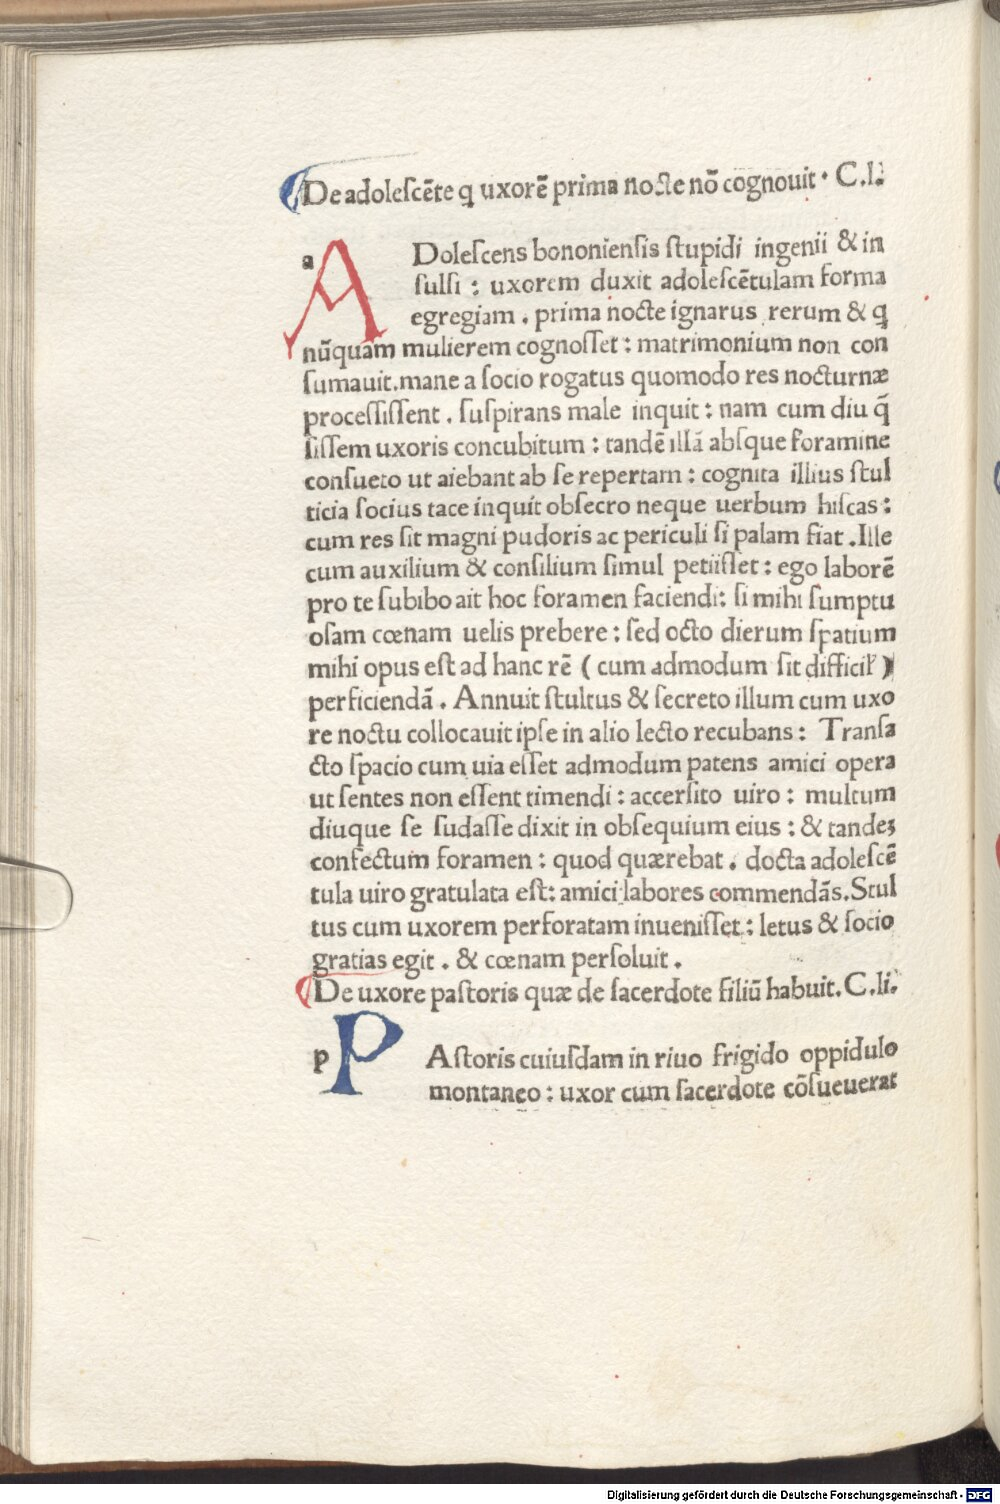 De adoleſcēte q uxorē prima nocte nō cognouit · C.l.
ADoleſcens bononienſis ſtupidi ingenii & in
ſulſi : uxorem duxit adoleſcētulam forma
egregiam . prima nocte ignarus rerum & q
nūquam mulierem cognoſſet : matrimonium non con
ſumauit.mane a ſocio rogatus quomodo res nocturnæ
proceſſiſſent . ſuſpirans male inquit : nam cum diu q̄
ſiſſem uxoris concubitum : tandē illā abſque foramine
conſueto ut aiebant ab ſe repertam : cognita illius ſtul
ticia ſocius tace inquit obſecro neque uerbum hiſcas :
cum res ſit magni pudoris ac periculi ſi palam fiat .Ille
cum auxilium & conſilium ſimul petiiſſet : ego laborē
pro te ſubibo ait hoc foramen faciendi: ſi mihi ſumptu
oſam cœnam uelis prebere : ſed octo dierum ſpatium
mihi opus eſt ad hanc rē ( cum admodum ſit difficil' )
perficiendā . Annuit ſtultus & ſecreto illum cum uxo
re noctu collocauit ipſe in alio lecto recubans : Tranſa
cto ſpacio cum uia eſſet admodum patens amici opera
ut ſentes non eſſent timendi : accerſito uiro : multum
diuque ſe ſudaſſe dixit in obſequium eius : & tandeꝫ
confectum foramen : quod quærebat . docta adoleſcē
tula uiro gratulata eſt: amici labores commendās.Stul
tus cum uxorem perforatam inueniſſet : letus & ſocio
gratias egit . & cœnam perſoluit .
De uxore paſtoris quæ de ſacerdote filiū habuit. C.li.
PAſtoris cuiuſdam in riuo frigido oppidulo
montaneo : uxor cum ſacerdote cōſueuerat
Digitalisierung gefördert durch die Deutsche Forschungsgemeinschaft - DFG